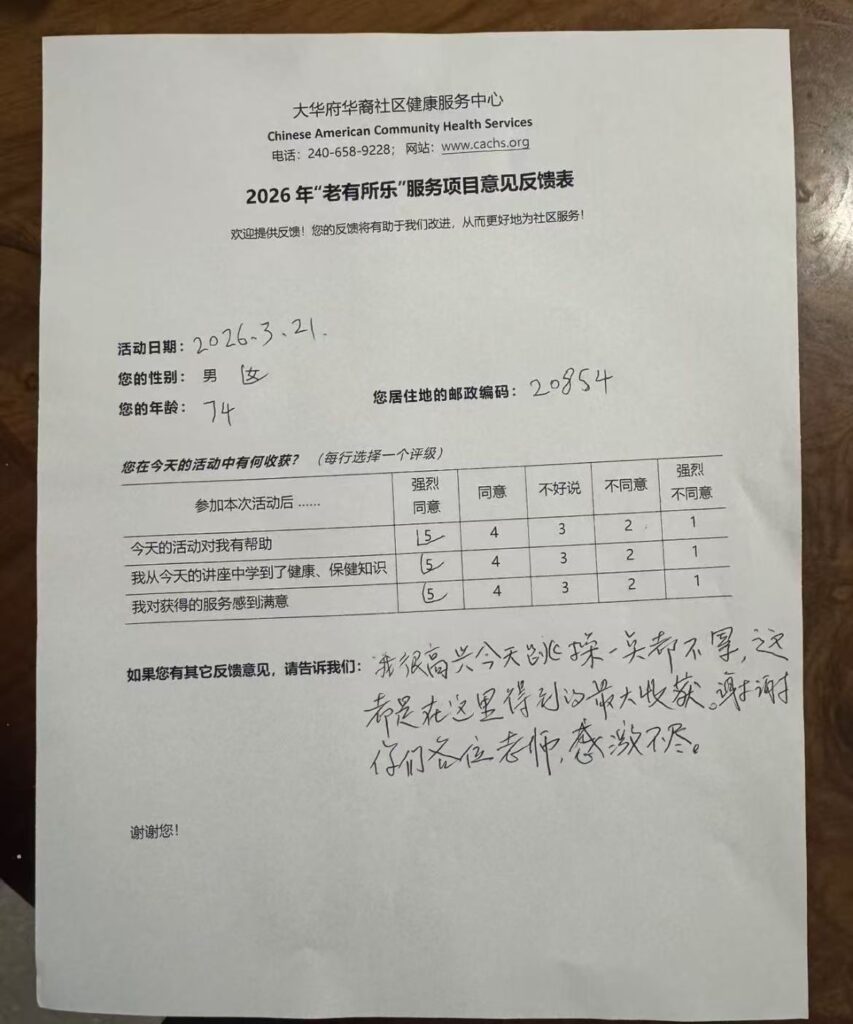 大华府华裔社区健康服务中心
Chinese American Community Health Services
电话：240-658-9228； 网站：www.cachs.org
2026 年“老有所乐”服务项目意见反馈表
欢迎提供反馈！您的反馈将有助于我们改进，从而更好地为社区服务！
活动日期：2026.3.21.
您的性别： 男 女
您的年龄： 74 您居住地的邮政编码： 20854
您在今天的活动中有何收获？ （每行选择一个评级）
参加本次活动后 ...... 强烈同意 同意 不好说 不同意 强烈不同意
今天的活动对我有帮助 5 4 3 2 1
我从今天的讲座中学到了健康、保健知识 5 4 3 2 1
我对获得的服务感到满意 5 4 3 2 1
如果您有其它反馈意见，请告诉我们： 我很高兴今天跳操一点都不累，这
都是在这里得到的最大收获。谢谢
你们各位老师，感激不尽。
谢谢您！